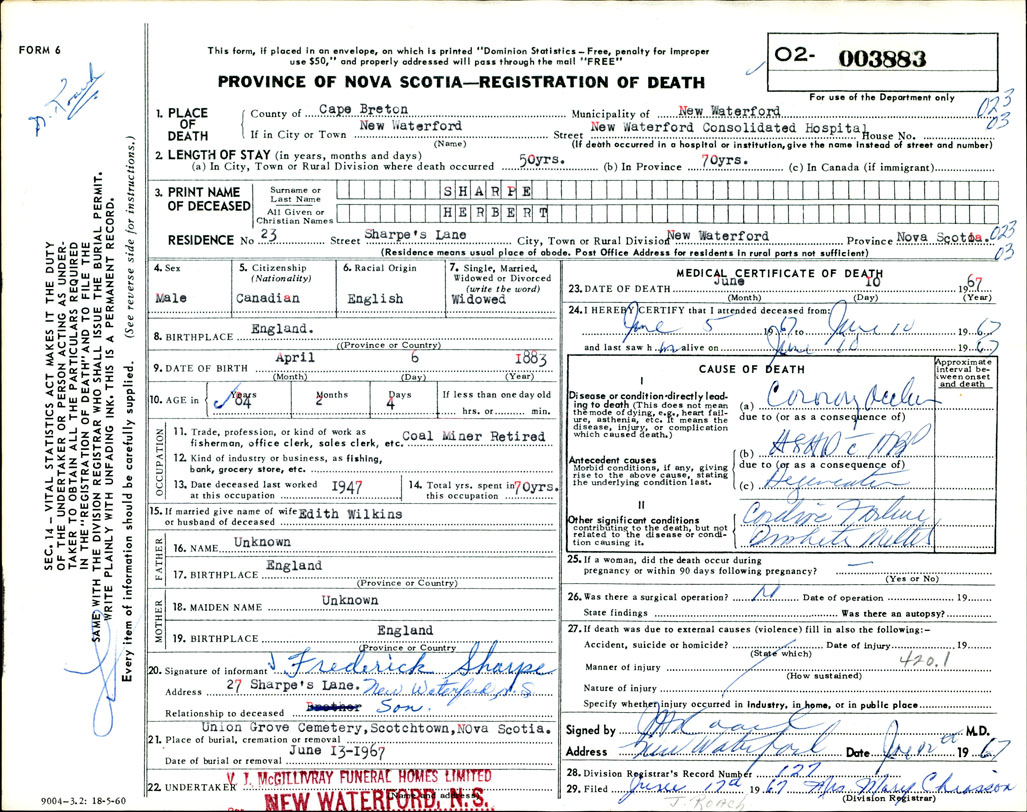 FORM 6
This form, if placed in an envelope, on which is printed "Dominion Statistics – Free, penalty for improper
use $50," and properly addressed will pass through the mail "FREE"
PROVINCE OF NOVA SCOTIA—REGISTRATION OF DEATH
O2- 003883
For use of the Department only
023
03
1. PLACE OF DEATH
County of Cape Breton Municipality of New Waterford
If in City or Town New Waterford Street New Waterford Consolidated Hospital House No.
(Name) (If death occurred in a hospital or institution, give the name instead of street and number)
2. LENGTH OF STAY (in years, months and days)
(a) In City, Town or Rural Division where death occurred 50yrs. (b) In Province 70yrs. (c) In Canada (if immigrant)
3. PRINT NAME OF DECEASED
Surname or Last Name SHARPE
All Given or Christian Names HERBERT
RESIDENCE No 23 Street Sharpe's Lane City, Town or Rural Division New Waterford Province Nova Scotia. 023
03
(Residence means usual place of abode. Post Office Address for residents in rural parts not sufficient)
4. Sex
Male
5. Citizenship
(Nationality)
Canadian
6. Racial Origin
English
7. Single, Married,
Widowed or Divorced
(write the word)
Widowed
8. BIRTHPLACE England.
((Province or Country)
9. DATE OF BIRTH April 6 1883
(Month) (Day) (Year)
10. AGE in Years 84 Months 2 Days 4 If less than one day old
hrs. or min.
OCCUPATION
11. Trade, profession, or kind of work as
fisherman, office clerk, sales clerk, etc. Coal Miner Retired
12. Kind of industry or business, as fishing,
bank, grocery store, etc.
13. Date deceased last worked
at this occupation 1947
14. Total yrs. spent in
this occupation 70yrs.
15. If married give name of wife
or husband of deceased Edith Wilkins
FATHER
16. NAME Unknown
17. BIRTHPLACE England
(Province or Country)
MOTHER
18. MAIDEN NAME Unknown
19. BIRTHPLACE England
(Province or Country)
20. Signature of informant J. Frederick Sharpe
Address 27 Sharpe's Lane. New Waterford, N.S.
Relationship to deceased Brother Son.
Union Grove Cemetery, Scotchtown, NOva Scotia.
21. Place of burial, cremation or removal
June 13-1967
Date of burial or removal
22. UNDERTAKER V. J. McGILLIVRAY FUNERAL HOMES LIMITED
(Name and address)
NEW WATERFORD, N.S.
MEDICAL CERTIFICATE OF DEATH
23. DATE OF DEATH June 10 1967
(Month) (Day) (Year)
24. I HEREBY CERTIFY that I attended deceased from:
June 5 1967 to June 10 1967
and last saw him alive on June 10 1967
CAUSE OF DEATH
Approximate
interval be-
tween onset
and death
I
Disease or condition directly lead-
ing to death (This does not mean
the mode of dying, e.g., heart fail-
ure, asthenia, etc. It means the
disease, injury, or complication
which caused death.)
(a) Coronary
due to (or as a consequence of)
Antecedent causes
Morbid conditions, if any, giving
rise to the above cause, stating
the underlying condition last.
(b) ASHD c HBP
due to (or as a consequence of)
(c)
II
Other significant conditions
contributing to the death, but not
related to the disease or condi-
tion causing it.
Cardiac Failure
25. If a woman, did the death occur during
pregnancy or within 90 days following pregnancy? —
(Yes or No)
26. Was there a surgical operation? Date of operation 19
State findings Was there an autopsy?
27. If death was due to external causes (violence) fill in also the following:–
Accident, suicide or homicide? Date of injury 19
(State which)
420.1
Manner of injury
(How sustained)
Nature of injury
Specify whether injury occurred in Industry, in home, or in public place
Signed by M.D.
Address New Waterford Date June 12th 1967
28. Division Registrar's Record Number 127
29. Filed June 17th 1967 Mrs. Mary Chiasson
(Division Registrar)
J. ROACH
SEC. 14 – VITAL STATISTICS ACT MAKES IT THE DUTY
OF THE UNDERTAKER OR PERSON ACTING AS UNDER-
TAKER TO OBTAIN ALL THE PARTICULARS REQUIRED
IN THE "REGISTRATION OF DEATH" AND TO FILE THE
SAME WITH THE DIVISION REGISTRAR WHO SHALL ISSUE THE BURIAL PERMIT.
WRITE PLAINLY WITH UNFADING INK. THIS IS A PERMANENT RECORD.
Every item of information should be carefully supplied. (See reverse side for instructions.)
9004–3.2: 18-5-60